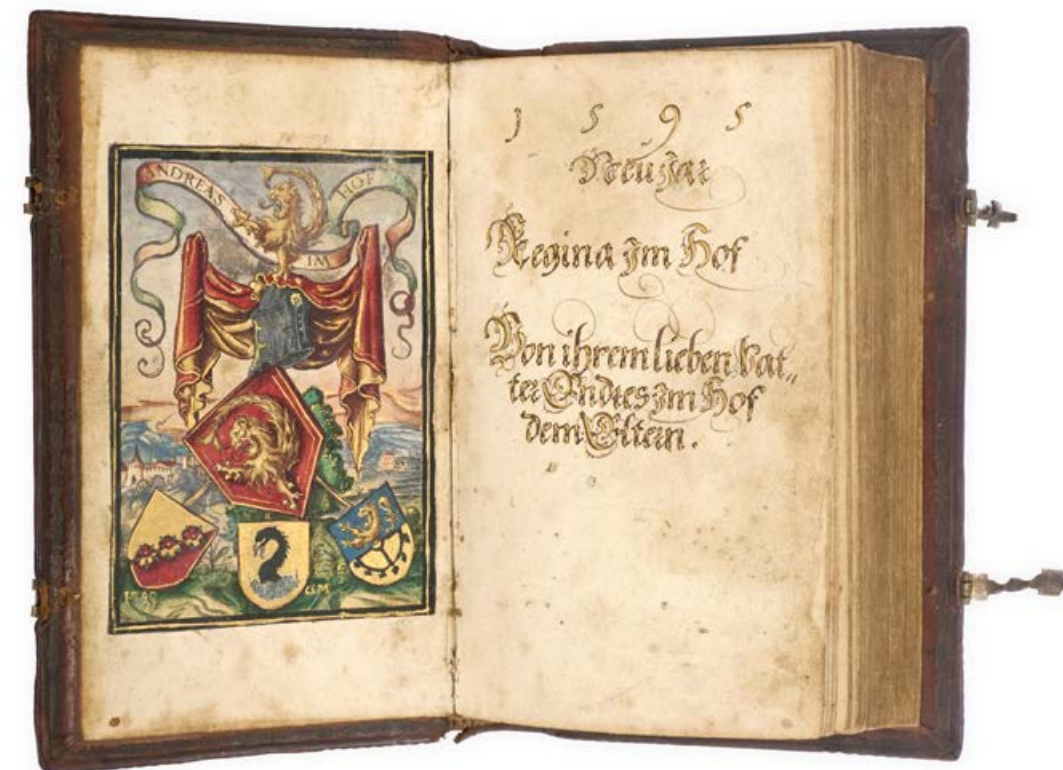 ANDREAS IM HOF
1 5 9 5
Neu Jar
Regina Jm Hof
Von ihrem lieben Vat„
ter Endres Jm Hof
dem Eltern.